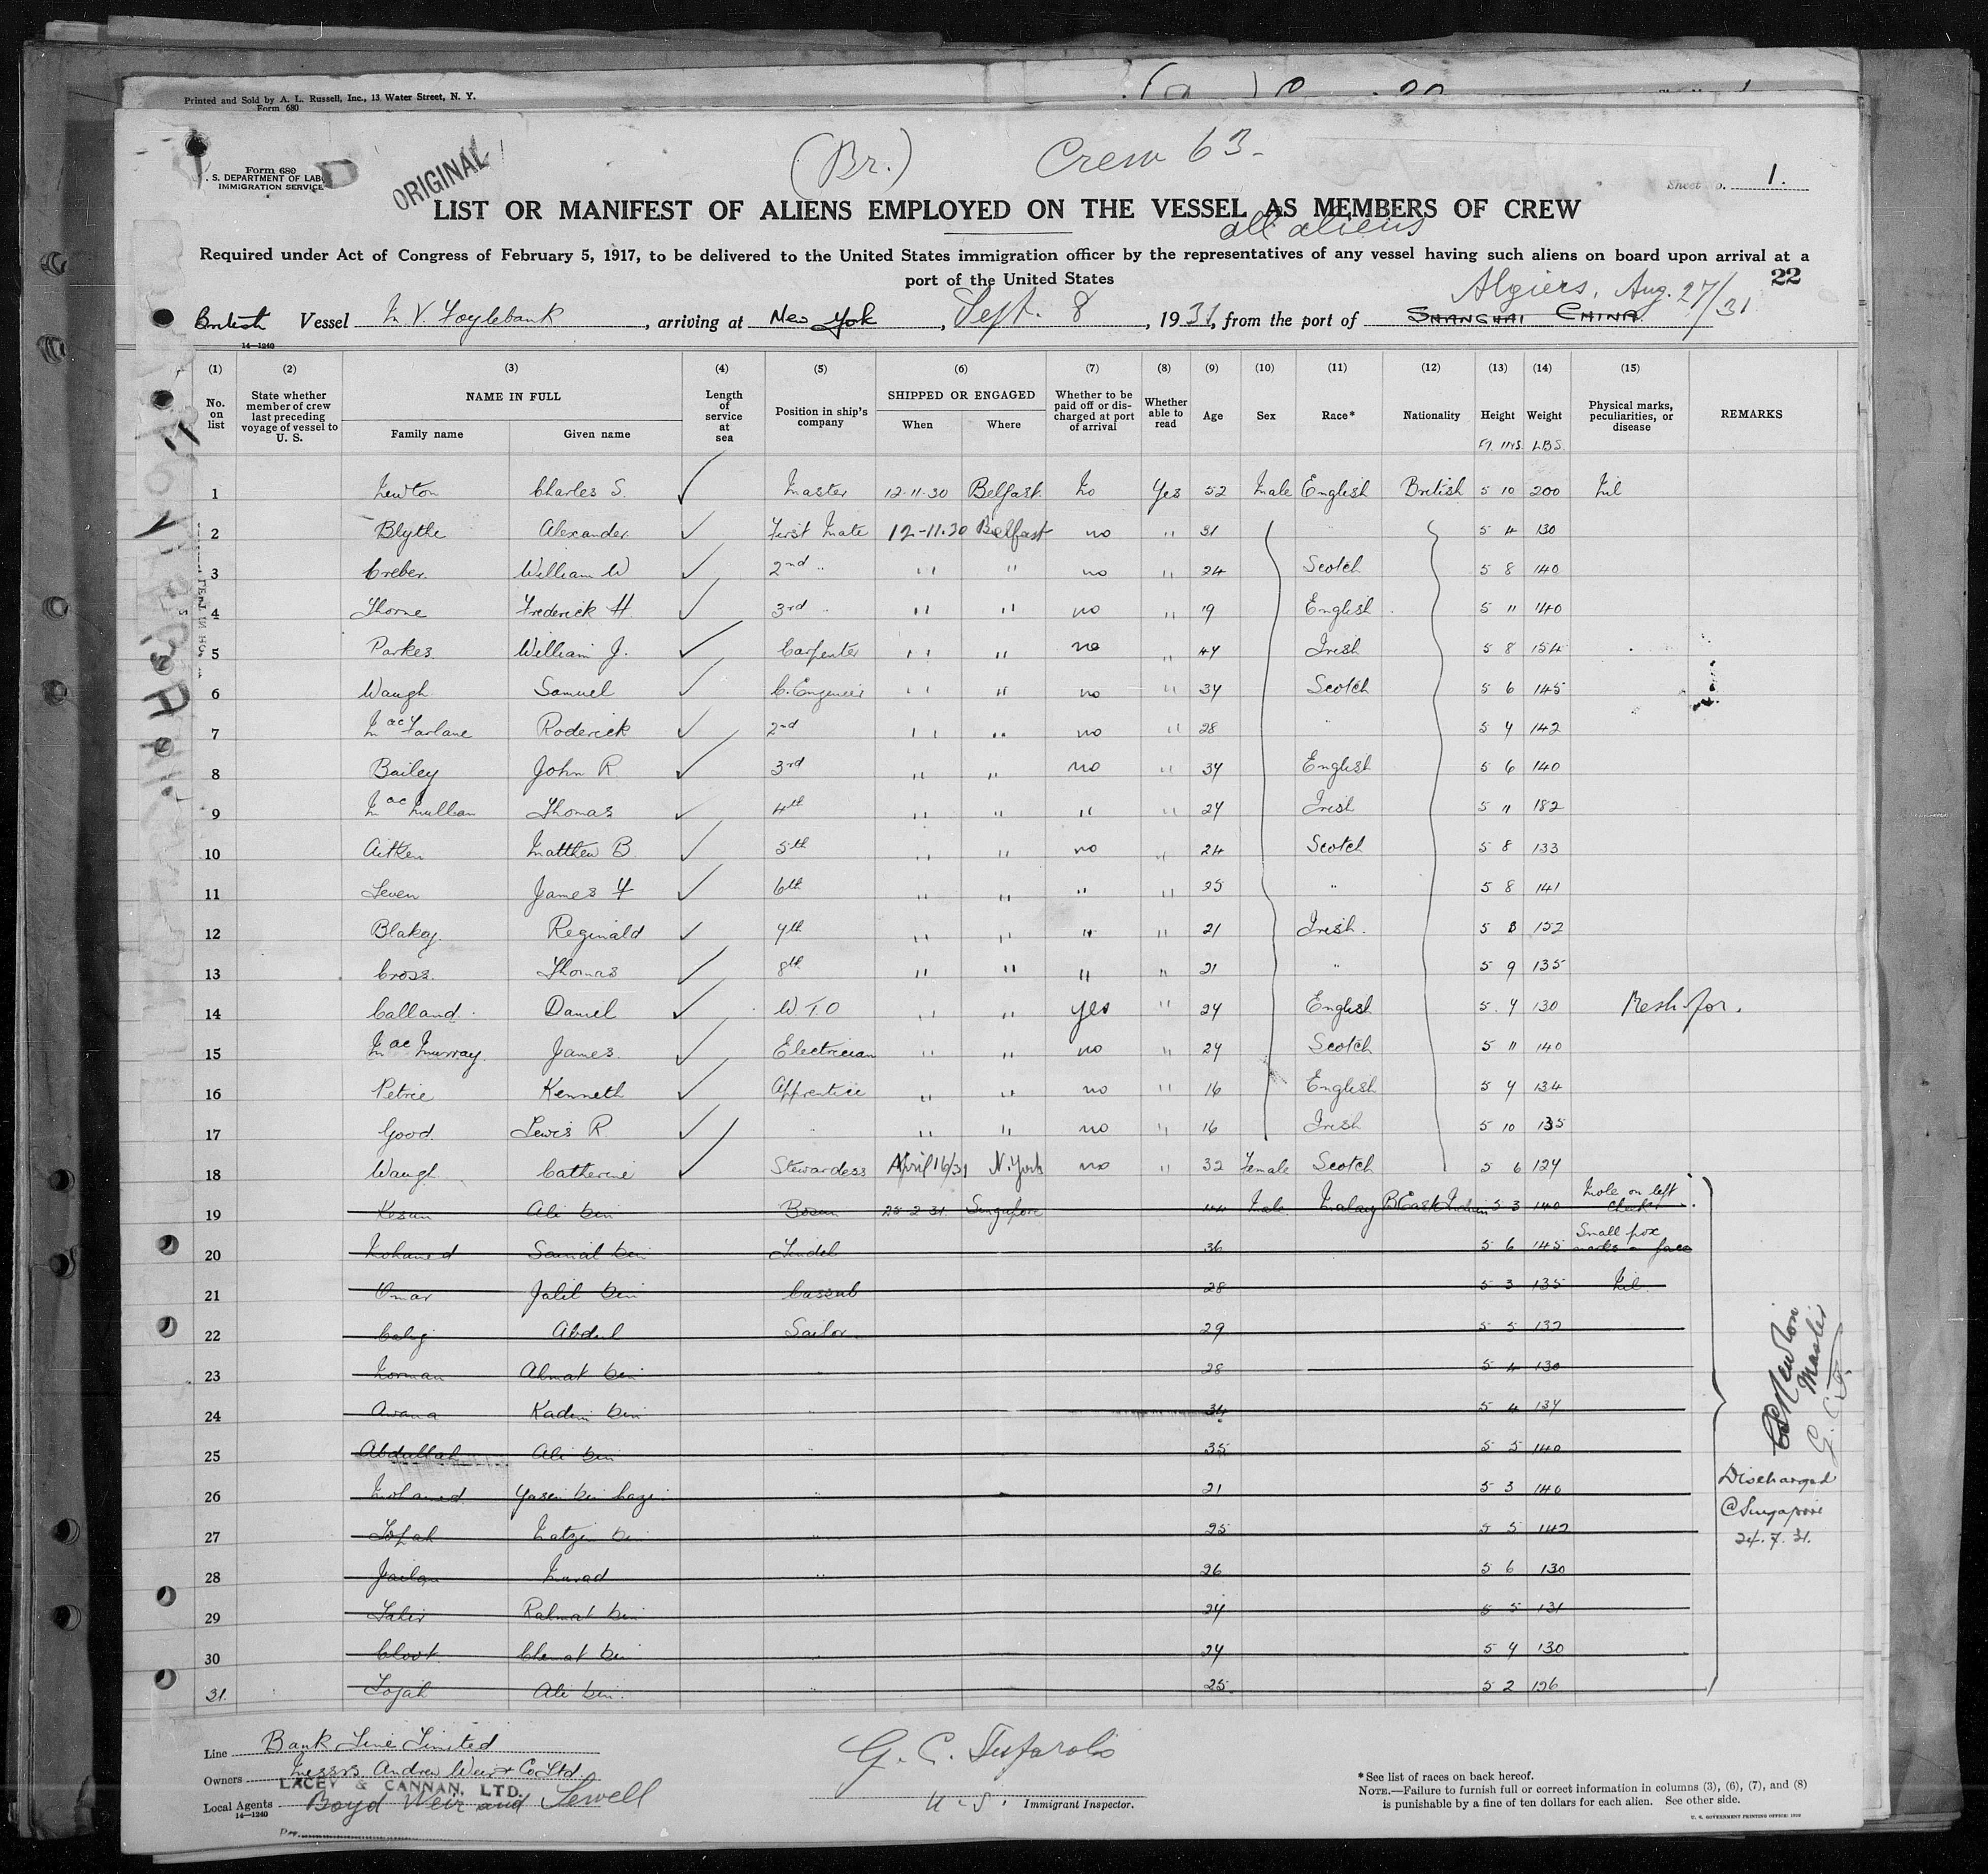 Printed and Sold by A. L. Russell, Inc., 13 Water Street, N. Y.
Form 680
(Br.) Crew 63-
Form 680
S. DEPARTMENT OF LAB
IMMIGRATION SERVICE
ORIGINAL
Sheet No. 1.
LIST OR MANIFEST OF ALIENS EMPLOYED ON THE VESSEL AS MEMBERS OF CREW
all aliens
Required under Act of Congress of February 5, 1917, to be delivered to the United States immigration officer by the representatives of any vessel having such aliens on board upon arrival at a
port of the United States
22
Algiers, Aug. 27/31
British Vessel M.V. Foylebank, arriving at New York, Sept. 8, 1931, from the port of SHANGHAI CHINA
14—1240
(1) (2) (3) (4) (5) (6) (7) (8) (9) (10) (11) (12) (13) (14) (15)
No. on list State whether member of crew last preceding voyage of vessel to U. S. NAME IN FULL Family name Given name Length of service at sea Position in ship's company SHIPPED OR ENGAGED When Where Whether to be paid off or discharged at port of arrival Whether able to read Age Sex Race* Nationality Height Weight Physical marks, peculiarities, or disease REMARKS
Ft. INS. LBS.
1 Newton Charles S. Master 12-11-30 Belfast No Yes 52 Male English British 5 10 200 Nil
2 Blythe Alexander First Mate 12-11.30 Belfast no " 31 " 5 4 130
3 Creber William W 2nd " " " no " 24 Scotch 5 8 140
4 Thorne Frederick H 3rd " " " no " 19 English 5 11 140
5 Parkes William J. Carpenter " " no " 44 Irish 5 8 154
6 Waugh Samuel C. Engineer " " no " 34 Scotch 5 6 145
7 MacFarlane Roderick 2nd " " no " 28 " 5 7 142
8 Bailey John R 3rd " " no " 37 English 5 6 140
9 MacMullan Thomas 4th " " " " 27 Irish 5 11 182
10 Aitken Matthew B 5th " " no " 24 Scotch 5 8 133
11 Leven James Y 6th " " " " 25 " 5 8 141
12 Blakey Reginald 7th " " " " 21 Irish. 5 8 152
13 Cross. Thomas 8th " " " " 21 " 5 9 135
14 Calland Daniel W.T.O " " yes " 27 English 5 7 130 Resh. for.
15 MacMurray James. Electrician " " no " 27 Scotch 5 11 140
16 Petrie Kenneth Apprentice " " no " 16 English 5 7 134
17 Good. Lewis R. " " " no " 16 Irish 5 10 135
18 Waugh Catherine Stewardess April 16/31 N. York no " 32 Female Scotch 5 6 127
19 Kesun Ali bin Bosun 25 2 31 Singapore 44 Male Malay B East Indian 5 3 140 Mole on left cheek
20 Mohamed Samat bin Tindal 36 5 6 145 Small pox marks on face
21 Omar Jalil bin Cassab 28 5 3 135 Nil
22 Abdul Sailor 29 5 5 132
23 Norman Ahmat bin " 28 5 4 130
24 Awana Kadim bin " 34 5 4 137
25 Abdullah Ali bin " 35 5 5 140
26 Mohamed Yasin bin " 21 5 3 140
27 bin " 25 5 5 142
28 Jailan Murad " 26 5 6 130
29 Talib Rahmat bin " 27 5 5 131
30 Chemat bin " 27 5 7 130
31. Ali bin. " 25 5 2 126
CSNewton
Master
G.C.T.
Discharged
@Singapore
24.7.31.
Line Bank Line Limited
Owners Messrs Andrew Weir & Co Ltd.
LACEY & CANNAN, LTD.
Local Agents Boyd Weir and Sewell
14—1240
G. C.
U.S. Immigrant Inspector.
*See list of races on back hereof.
NOTE.—Failure to furnish full or correct information in columns (3), (6), (7), and (8)
is punishable by a fine of ten dollars for each alien. See other side.
U. S. GOVERNMENT PRINTING OFFICE: